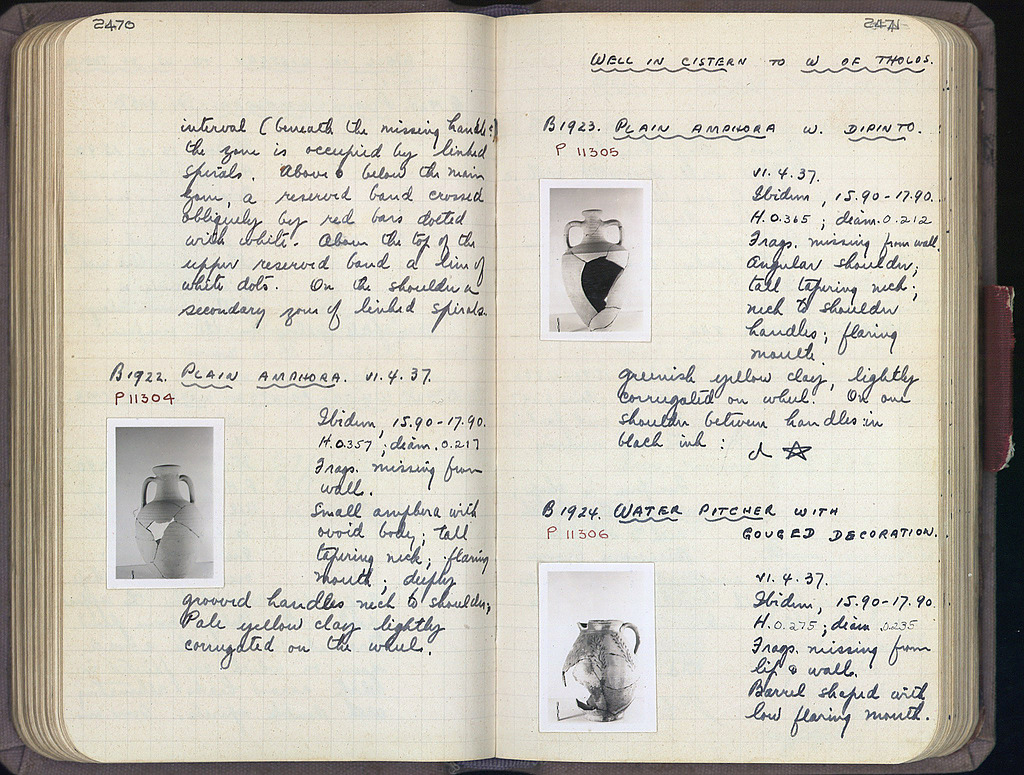 2470
interval (beneath the missing handle:)
the zone is occupied by linked
spirals. Above & below the main
zone, a reserved band crossed
obliquely by red bars dotted
with white. Above the top of the
upper reserved band a line of
white dots. On the shoulder a
secondary zone of linked spirals.
B1922. PLAIN AMPHORA. VI.4.37.
P 11304
Ibidem, 15.90-17.90.
H.0.357; diam. 0.217
Frags. missing from
wall.
Small amphora with
ovoid body; tall
tapering neck; flaring
mouth; deeply
grooved handles neck to shoulder;
Pale yellow clay lightly
corrugated on the wheel.
2471
WELL IN CISTERN TO W OF THOLOS.
B1923. PLAIN AMPHORA W. DIPINTO.
P 11305
VI.4.37.
Ibidem, 15.90-17.90.
H.0.365; diam. 0.212
Frags. missing from wall.
Angular shoulder;
tall tapering neck;
neck to shoulder
handles; flaring
mouth.
Greenish yellow clay, lightly
corrugated on wheel. On one
shoulder between handles in
black ink:
B1924. WATER PITCHER WITH
GOUGED DECORATION.
P 11306
VI.4.37.
Ibidem, 15.90-17.90.
H.0.275; diam 0.235
Frags. missing from
lip & wall.
Barrel shaped with
low flaring mouth.